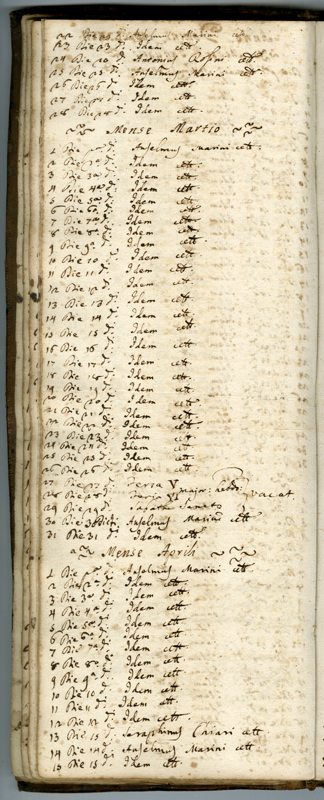 22 Die 22 dj. Anselmus Marini cett.
23 Die 23 dj. Idem cett.
24 Die 24 dj. Antonius Rosini cett.
25 Die 25 dj. Anselmus Marini cett.
26 Die 26 dj. Idem cett.
27 Die 27 dj. Idem cett.
28 Die 28 dj. Idem cett.
Mense Martio
1 Die pa dj. Anselmus Marini cett.
2 Die 2a dj. Idem cett.
3 Die 3a dj. Idem cett.
4 Die 4a dj. Idem cett.
5 Die 5a dj. Idem cett.
6 Die 6a dj. Idem cett.
7 Die 7a dj. Idem cett.
8 Die 8a dj. Idem cett.
9 Die 9a dj. Idem cett.
10 Die 10 dj. Idem cett.
11 Die 11 dj. Idem cett.
12 Die 12 dj. Idem cett.
13 Die 13 dj. Idem cett.
14 Die 14 dj. Idem cett.
15 Die 15 dj. Idem cett.
16 Die 16 dj. Idem cett.
17 Die 17 dj. Idem cett.
18 Die 18 dj. Idem cett.
19 Die 19 dj. Idem cett.
20 Die 20 dj. Idem cett.
21 Die 21 dj. Idem cett.
22 Die 22 dj. Idem cett.
23 Die 23 dj. Idem cett.
24 Die 24 dj. Idem cett.
25 Die 25 dj. Idem cett.
26 Die 26 dj. Idem cett.
27 Die 27 dj. Feria V
28 Die 28 dj. Feria VI major: hebd: vacat
29 Die 29 dj. Sabato Sancto
30 Die 30 Anselmus Marini cett
31 Die 31 dj. Idem cett.
Mense Aprili
1 Die pa dj. Anselmus Marini cett
2 Die 2a dj. Idem cett.
3 Die 3a dj. Idem cett.
4 Die 4a dj. Idem cett.
5 Die 5a dj. Idem cett.
6 Die 6a dj. Idem cett.
7 Die 7a dj. Idem cett
8 Die 8a dj. Idem cett.
9 Die 9a dj. Idem cett.
10 Die 10 dj. Idem cett.
11 Die 11 dj. Idem cett
12 Die 12 dj. Idem cett.
13 Die 13 dj. Seraphinus Chiari cett
14 Die 14 dj. Anselmus Marini cett
15 Die 15 dj. Idem cett